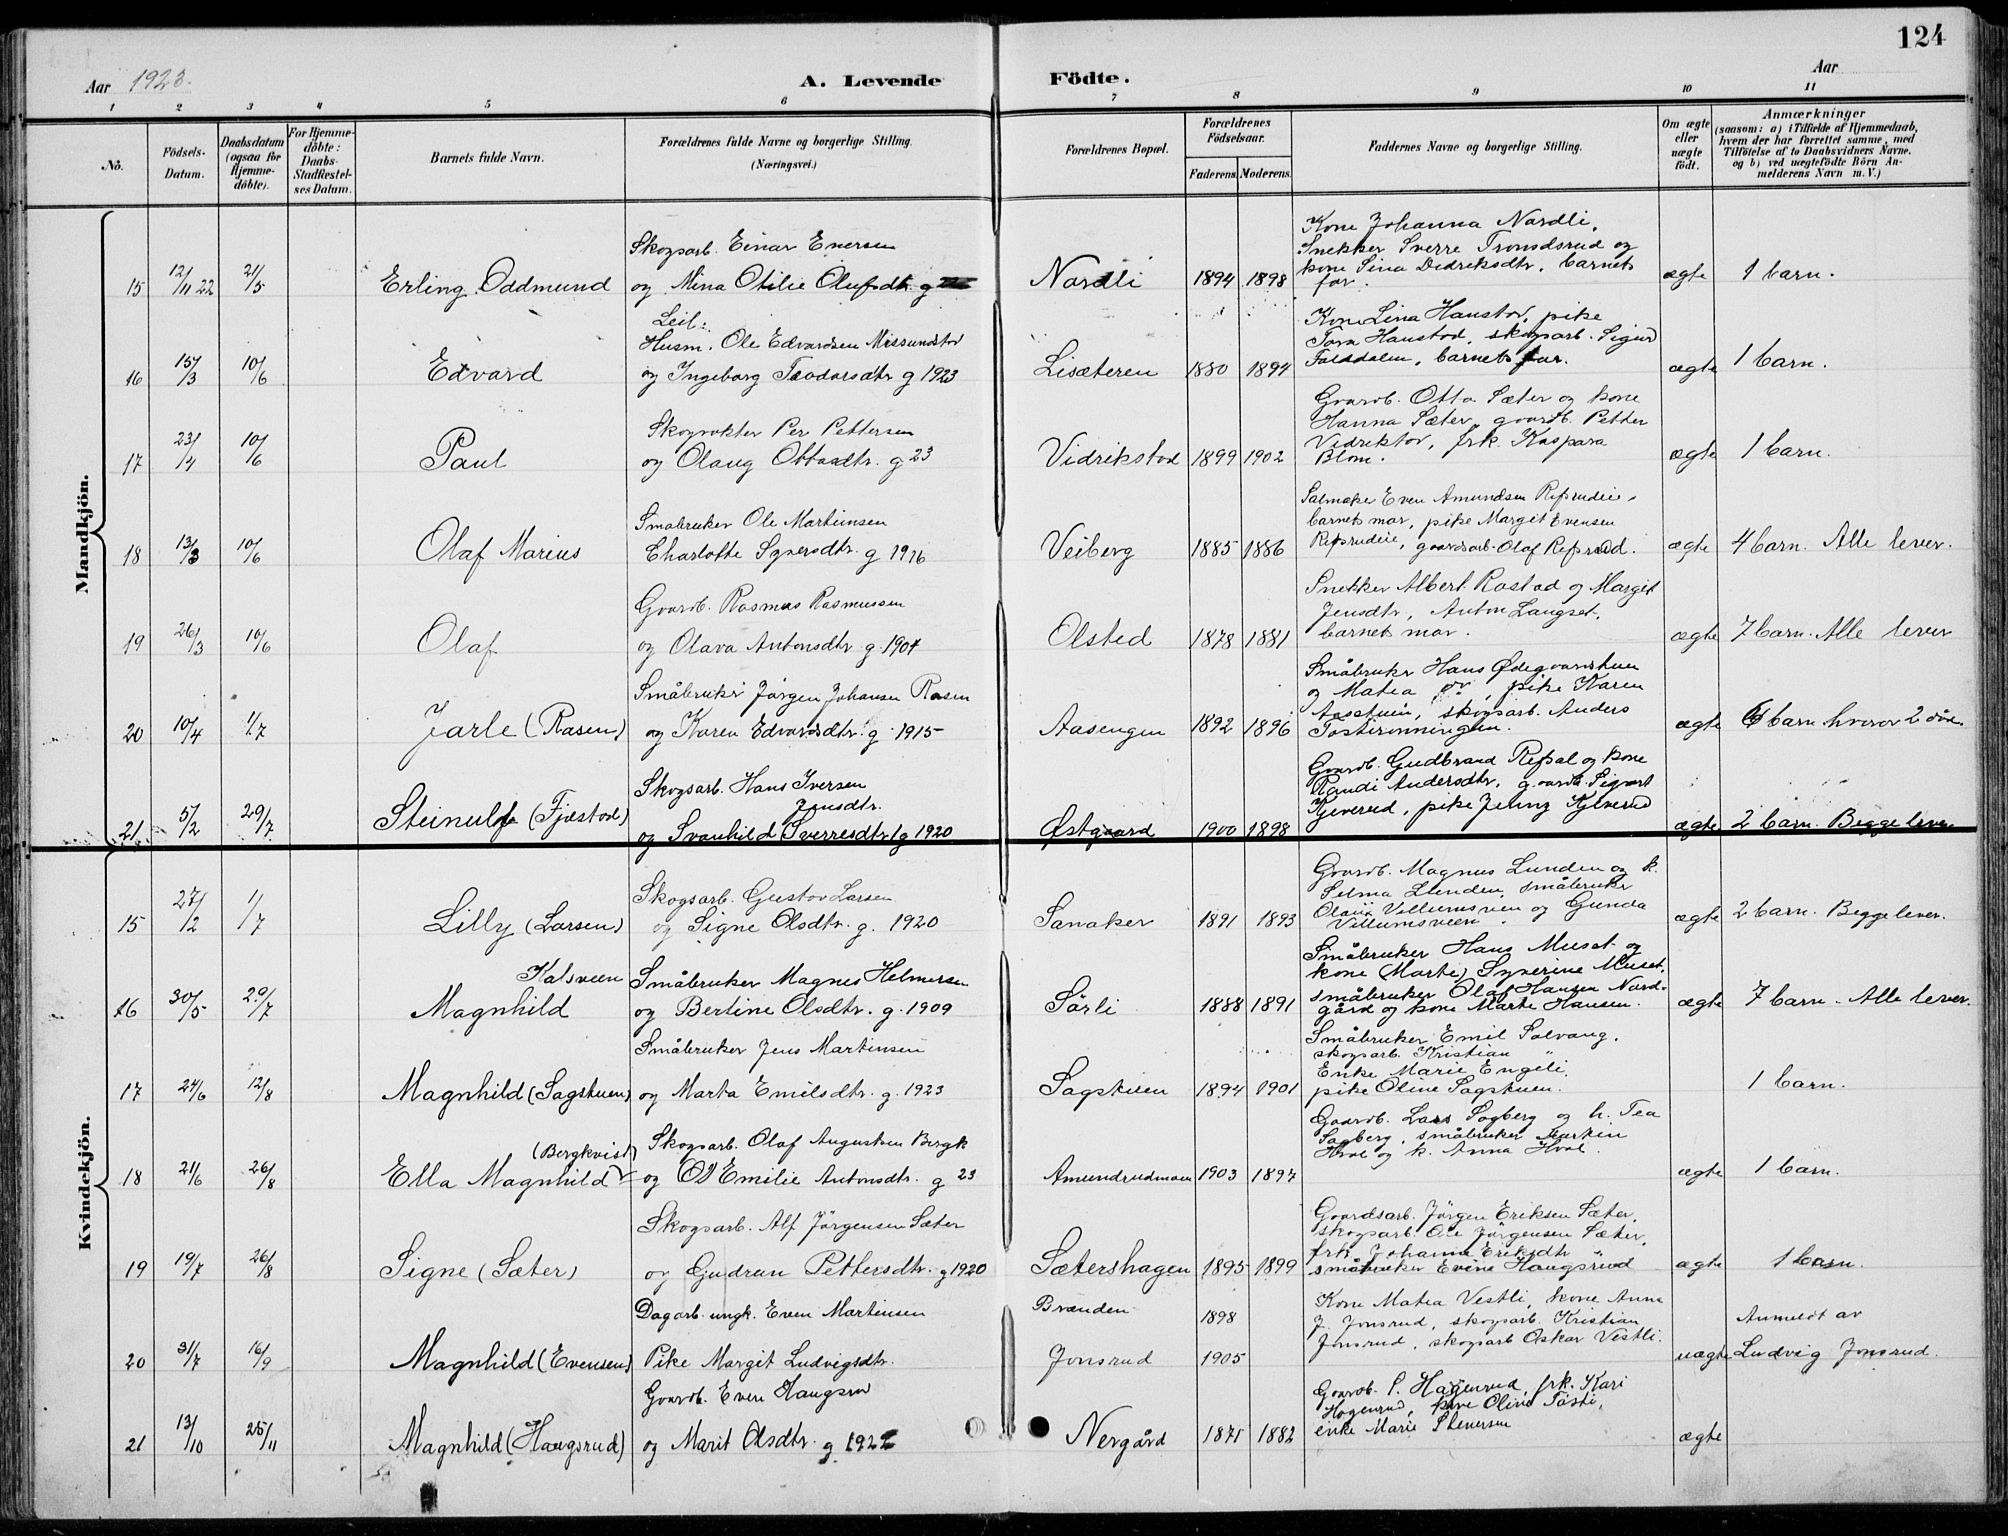 124
Aar 1923.
A. Levende
Födte.
Aar
1 2 3 4 5 6 7 8 9 10 11
No.
Födsels-Datum.
Daabsdatum (ogsaa for Hjemmedöbte).
For Hjemmedöbte: Daabs-Stadfæstelses Datum.
Barnets fulde Navn.
Forældrenes fulde Navne og borgerlige Stilling. (Næringsvei.)
Forældrenes Bopæl.
Forældrenes Födselsaar.
Faderens. Moderens.
Faddernes Navne og borgerlige Stilling.
Om ægte eller uægte födt.
Anmærkninger
(saasom: a) i Tilfælde af Hjemmedaab, hvem der har forrettet samme, med Tilföielse af to Daabsvidners Navne. og b) ved uægtefödte Börn Anmelderens Navn m. V.)
Mandkjön.
15 12/11 22 21/5 Erling Oddmund
Skogsarb. Einar Enersen
og Mina Otilie Olufsdtr. g
Nordli 1894 1898
Kone Johanna Nordli,
Snekker Sverre Tromdsrud og
kone Sina Didriksdtr, barnets
far.
ægte 1 barn.
16 15/3 10/6 Edvard
Leil:
Husm. Ole Edvardsen Missundstod
og Ingeborg Teodorsdtr g 1923
Lisæteren 1880 1894
Kone Lina Haustod, pike
Tora Haustod, skogsarb. Sigurd
Falddalen, barnets far.
ægte 1 barn.
17 23/4 10/6 Paul
Skogvokter Per Pettersen
og Olaug Ottosdtr. g 23
Vidrikstod 1899 1902
Gaardb. Otto Sæter og kone
Hanna Sæter, gaardb. Petter
Vidrikstod, frk. Kaspara
Blom.
ægte 1 barn.
18 13/3 10/6 Olaf Marius
Småbruker Ole Martinsen
Charlotte Syversdtr. g 1916
Veiberg 1885 1886
Salmaker Even Amundsen Refsrudeie,
barnets mor, pike Margit Evensen
Refsrudeie, gaardsarb. Olaf Refsrud.
ægte 4 barn. Alle lever.
19 26/3 10/6 Olaf
Gaardb. Rasmus Rasmussen
og Olava Antonsdtr g. 1904
Olsted 1878 1881
Snekker Albert Rostad og Margit
Jensdtr, Anton Langset,
barnets mor.
ægte 7 barn. Alle lever
20 10/4 1/7 Jarle (Rasen)
Småbruker Jørgen Johansen Rasen
og Karen Edvardsdtr. g. 1915
Aasengen 1892 1896
Småbruker Hans Ødegaardstuen
og Matea do, pike Karen
Aasetuen, skogsarb. Anders
Tostirønningen.
ægte 6 barn hvorav 2 død.
21 5/2 29/7 Steinulf (Fjæstad)
Skogsarb. Hans Iversen
Jensdtr.
og Svanhild Sverresdtr g 1920
Østgaard 1900 1898
Gaardb. Gudbrand Refsal og kone
Randi Andersdtr, gaardb. Sigvart
Kjeverud, pike Jenny Kjeverud
ægte 2 barn. Begge lever.
Kvindekjön.
15 27/2 1/7 Lilly (Larsen)
Skogsarb. Gustav Larsen
og Signe Olsdtr. g. 1920
Sanaker 1891 1893
Gaardb. Magnus Lunden og k.
Selma Lunden, småbruker
Villumsveen og Gunda
Villumsveen.
ægte 2 barn. Begge lever.
16 30/5 29/7 Kalsveen
Magnhild
Småbruker Magnus Helmersen
og Bertine Olsdtr. g. 1909
Sørli 1888 1891
Småbruker Hans Muset og
kone (Marte) Syverine Muset,
småbruker Olaf Hansen Nord-
gård og kone Marte Hansen.
ægte 7 barn. Alle lever.
17 24/6 12/8 Magnhild (Sagstuen)
Småbruker Jens Martinsen
og Marta Emilsdtr. g. 1923
Sagstuen 1894 1901
Småbruker Emil Solvang.
skogsarb. Kristian "
Enke Marie Engeli,
pike Oline Sagstuen.
1 barn.
18 21/6 26/8 (Bergkvist)
Ella Magnhild
Skogsarb. Olaf Augustsen Bergk
og Emilie Antonsdtr. g 23
Amundrudmoen 1903 1897
Gaardb. Lars Sagberg og h. Tea
Sagberg, småbruker Martin
Hval og k. Anna Hval.
ægte 1 barn.
19 19/7 26/8 Signe (Sæter)
Skogsarb. Alf Jørgensen Sæter
og Gudrun Pettersdtr. g 1920
Sætershagen 1895 1899
Gaardsarb. Jørgen Eriksen Sæter,
skogsarb. Ole Jørgensen Sæter,
frk. Johanne Eriksdtr
småbruker Evine Haugsrud
ægte 1 barn.
20 31/7 16/9 Magnhild (Evensen)
Dagarb. ungk. Even Martinsen
Pike Margit Ludvigsdtr.
Brænden 1898
Jonsrud 1905
Kone Matea Vestli, kone Anna
J. Jonsrud, skogsarb. Kristian
Jonsrud, skogsarb Oskar Vestli.
uægte
Anmeldt av
Ludvig Jonsrud.
21 13/10 25/11 Magnhild (Haugsrud)
Gaardb. Even Haugsrud
og Marit Olsdtr. g 1922
Nergård 1875 1882
Gaardb. P. Hagenrud, frk. Kari
Hagenrud, kone Oline Tosti,
enke Marie Stenersen
ægte